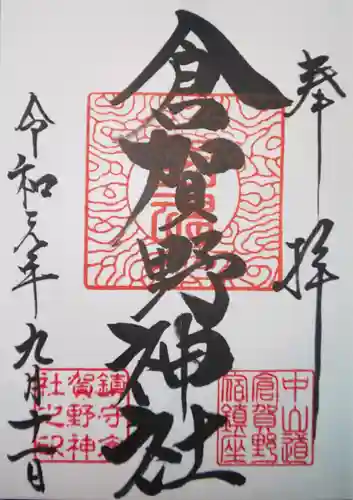 奉拝
倉賀野神社
令和元年九月十一日
中山道
倉賀野
宿鎮座
鎮守
賀野神
社之印